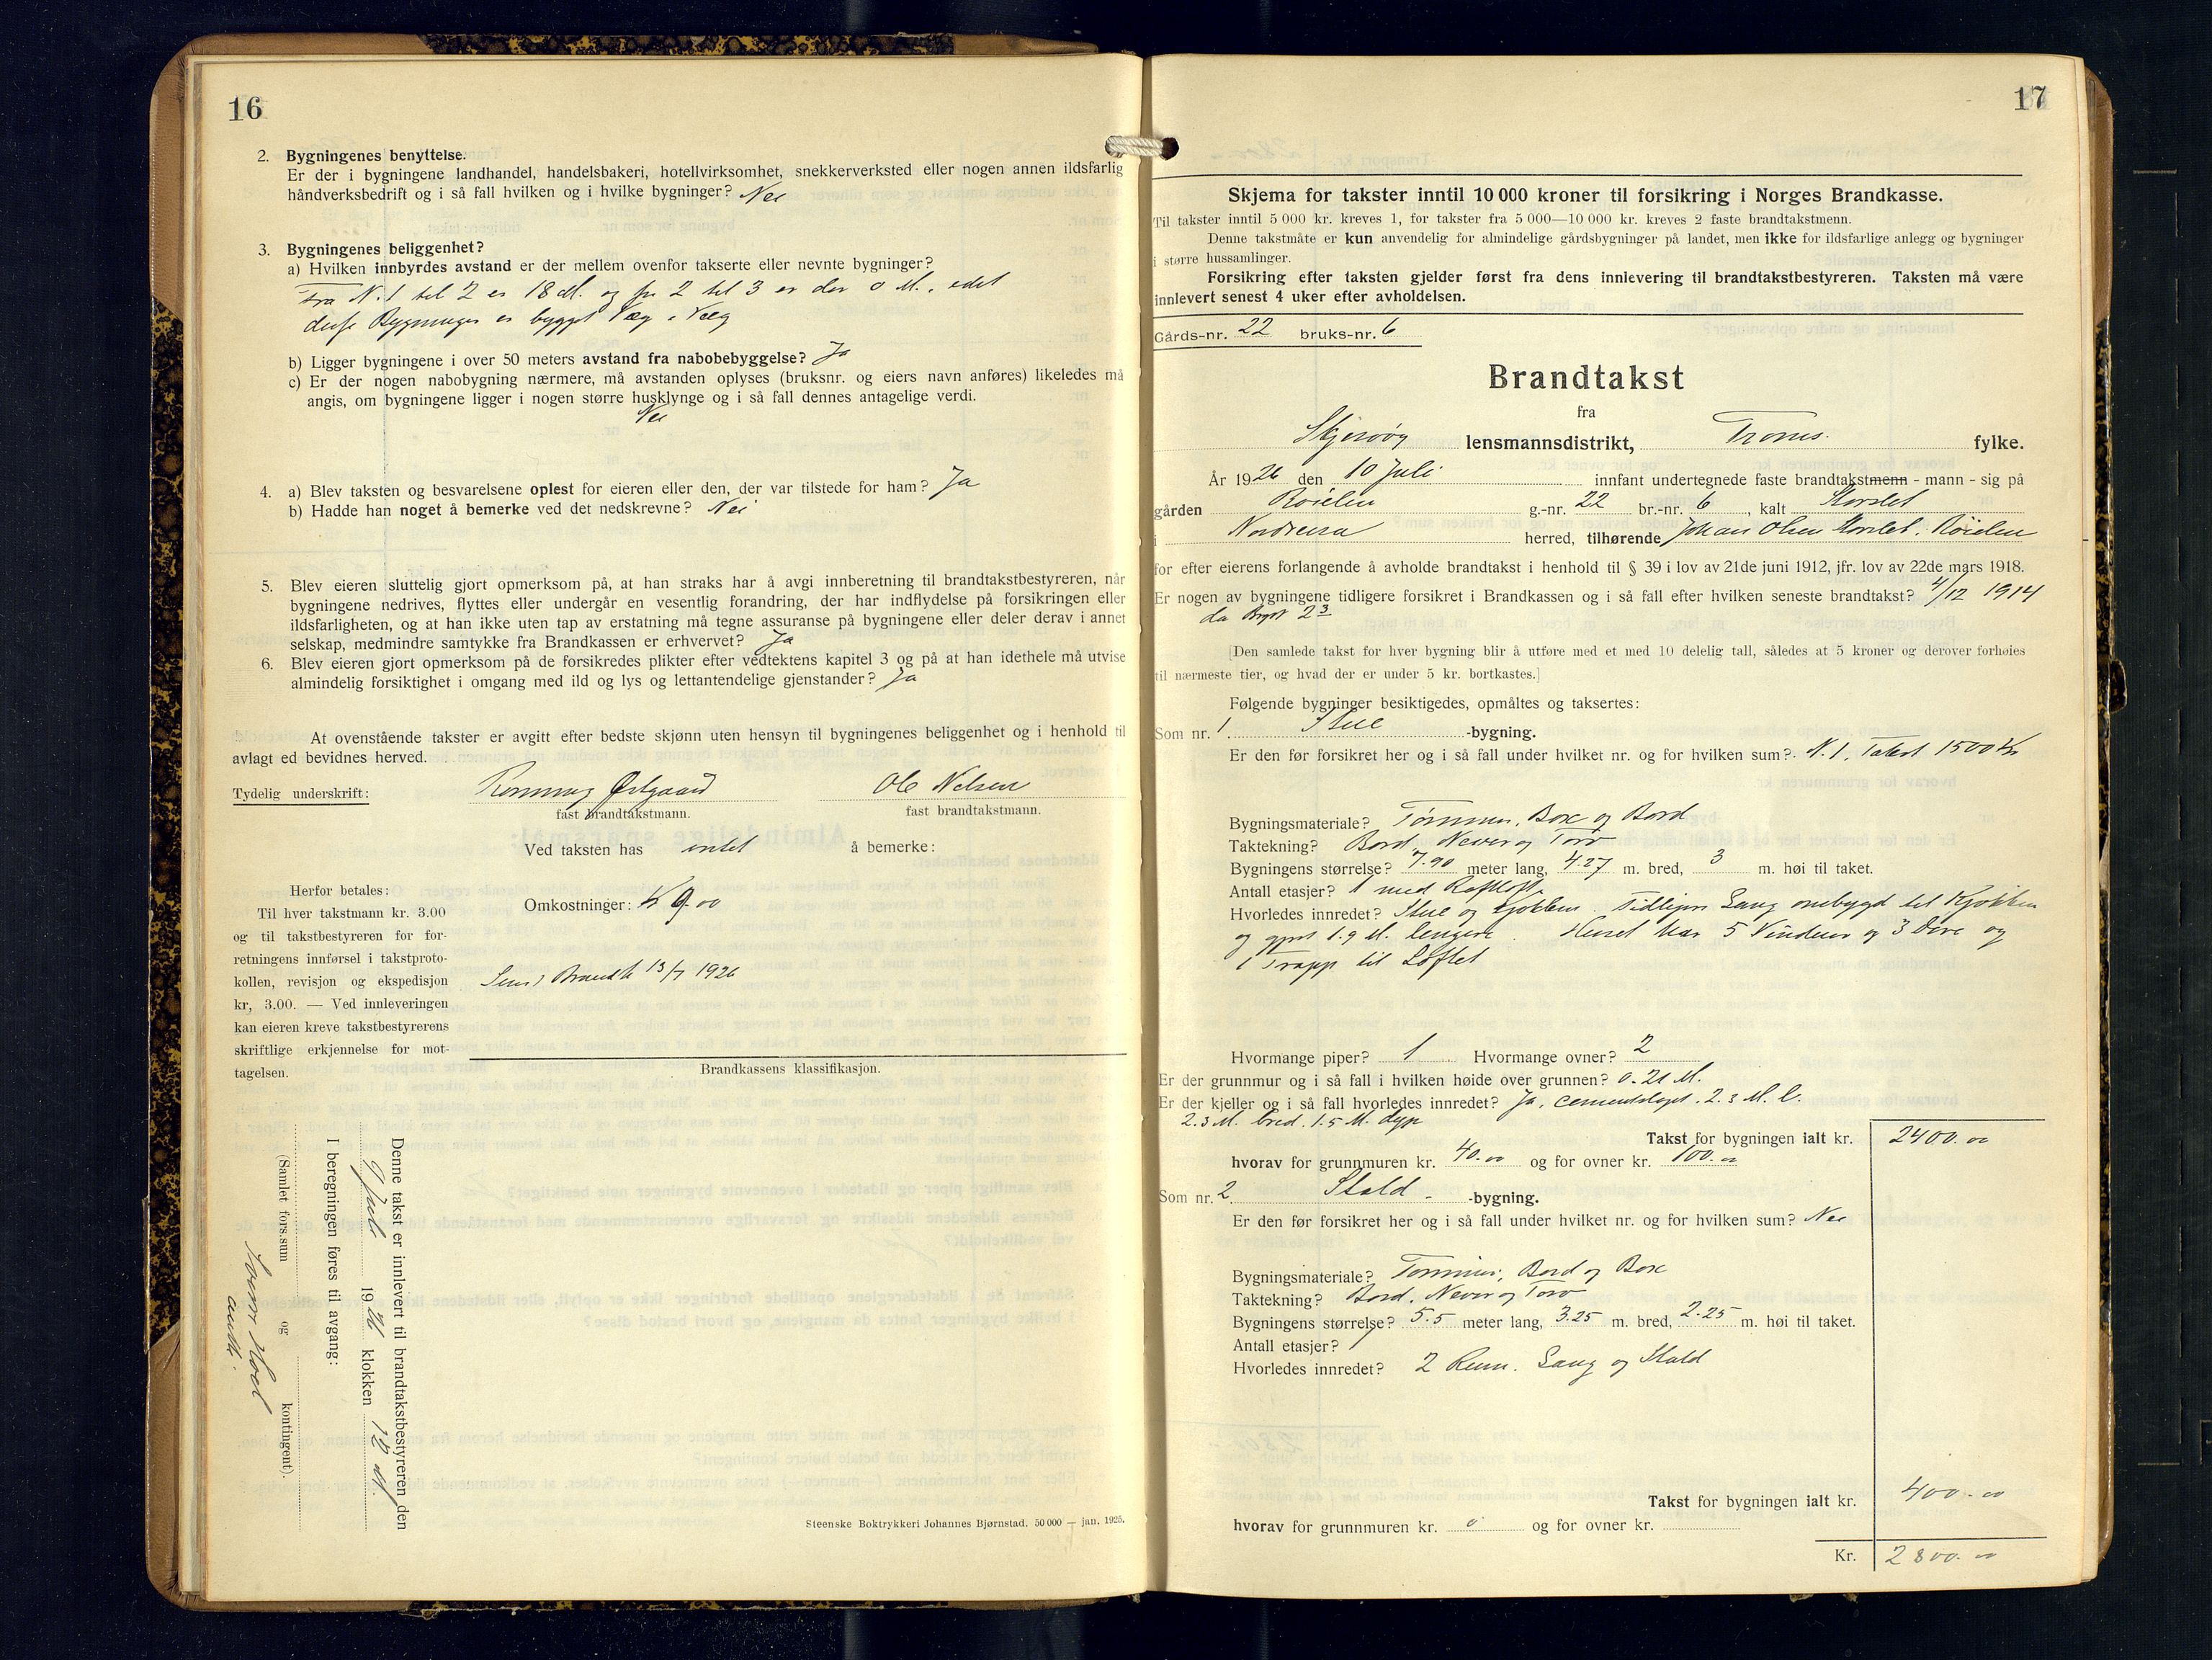 16
2. Bygningenes benyttelse.
Er der i bygningene landhandel, handelsbakeri, hotellvirksomhet, snekkerverksted eller nogen annen ildsfarlig
håndverksbedrift og i så fall hvilken og i hvilke bygninger? Nei
3. Bygningenes beliggenhet?
a) Hvilken innbyrdes avstand er der mellem ovenfor takserte eller nevnte bygninger?
Fra N. 1 til 2 er 18 M. og fra 2 til 3 er der 0 M., idet
disse Bygninger er bygget Væg i Væg
b) Ligger bygningene i over 50 meters avstand fra nabobebyggelse? Ja
c) Er der nogen nabobygning nærmere, må avstanden oplyses (bruksnr. og eiers navn anføres) likeledes må
angis, om bygningene ligger i nogen større husklynge og i så fall dennes antagelige verdi.
Nei
4. a) Blev taksten og besvarelsene oplest for eieren eller den, der var tilstede for ham? Ja
b) Hadde han noget å bemerke ved det nedskrevne? Nei
5. Blev eieren sluttelig gjort opmerksom på, at han straks har å avgi innberetning til brandtakstbestyreren, når
bygningene nedrives, flyttes eller undergår en vesentlig forandring, der har indflydelse på forsikringen eller
ildsfarligheten, og at han ikke uten tap av erstatning må tegne assuranse på bygningene eller deler derav i annet
selskap, medmindre samtykke fra Brandkassen er erhvervet? Ja
6. Blev eieren gjort opmerksom på de forsikredes plikter efter vedtektens kapitel 3 og på at han idethele må utvise
almindelig forsiktighet i omgang med ild og lys og lettantendelige gjenstander? Ja
At ovenstående takster er avgitt efter bedste skjønn uten hensyn til bygningenes beliggenhet og i henhold til
avlagt ed bevidnes herved.
Tydelig underskrift: Østgaard Ole Nelsen
fast brandtakstmann. fast brandtakstmann.
Ved taksten has intet å bemerke:
Omkostninger: kr 9.00
Herfor betales:
Til hver takstmann kr. 3.00
og til takstbestyreren for for-
retningens innførsel i takstproto-
kollen, revisjon og ekspedisjon
kr, 3.00. — Ved innleveringen
kan eieren kreve takstbestyrerens
skriftlige erkjennelse for mot-
tagelsen.
13/7 1926
Brandkassens klassifikasjon.
Denne takst er innlevert til brandtakstbestyreren den
9 Juli 1926 klokken 12
I beregningen føres til avgang:
(Samlet fors.sum og kontingent).
Steenske Boktrykkeri Johannes Bjørnstad. 50 000 — jan. 1925.
17
Skjema for takster inntil 10 000 kroner til forsikring i Norges Brandkasse.
Til takster inntil 5 000 kr. kreves 1, for takster fra 5 000—10 000 kr. kreves 2 faste brandtakstmenn.
Denne takstmåte er kun anvendelig for almindelige gårdsbygninger på landet, men ikke for ildsfarlige anlegg og bygninger
i større hussamlinger.
Forsikring efter taksten gjelder først fra dens innlevering til brandtakstbestyreren. Taksten må være
innlevert senest 4 uker efter avholdelsen.
Gårds-nr. 22 bruks-nr. 6
Brandtakst
fra
Skjervøy lensmannsdistrikt, Troms. fylke.
År 1926 den 10 Juli innfant undertegnede faste brandtakstmenn - mann - sig på
gården Roielen g.-nr. 22 br.-nr. 6, kalt Storslet
i Nordreisa herred, tilhørende Johan Olsen Storslet. Röielen
for efter eierens forlangende å avholde brandtakst i henhold til § 39 i lov av 21de juni 1912, jfr. lov av 22de mars 1918.
Er nogen av bygningene tidligere forsikret i Brandkassen og i så fall efter hvilken seneste brandtakst? 4/12 1914
[Den samlede takst for hver bygning blir å utføre med et med 10 delelig tall, således at 5 kroner og derover forhøies
til nærmeste tier, og hvad der er under 5 kr. bortkastes.]
Følgende bygninger besiktigedes, opmåltes og taksertes:
Som nr. 1 Stue -bygning.
Er den før forsikret her og i så fall under hvilket nr. og for hvilken sum? N. 1. Takst 1500 Kr
Bygningsmateriale? Tømmer, Boxe og Bord
Taktekning? Bord, Never og Torv
Bygningens størrelse? 7.90 meter lang, 4.27 m. bred, 3 m. høi til taket.
Antall etasjer? 1 med Roftloft.
Hvorledes innredet? Stue og Kjøkken. Tidligere Gang ombygd til Kjøkken
og gjort 1.9 M. lengere. Huset har 5 Vinduer og 3 Døre og
1 Trapp til Loftet
Hvormange piper? 1 Hvormange ovner? 2
Er der grunnmur og i så fall i hvilken høide over grunnen? 0.21 M.
Er der kjeller og i så fall hvorledes innredet? Ja, cementstøpt. 2.3 M. l.
2.3 M. bred. 1.5 M. dyp
Takst for bygningen ialt kr. 2400.00
hvorav for grunnmuren kr. 40.00 og for ovner kr. 100.00
Som nr. 2. Stald -bygning.
Er den før forsikret her og i så fall under hvilket nr. og for hvilken sum? Nei
Bygningsmateriale? Tømmer, Bord og Boxe
Taktekning? Bord, Never og Torv
Bygningens størrelse? 5.5 meter lang, 3.25 m. bred, 2.25 m. høi til taket.
Antall etasjer? 1
Hvorledes innredet? 2 Rum. Gang og Stald
Takst for bygningen ialt kr. 400.00
hvorav for grunnmuren kr. 0 og for ovner kr.
Kr. 2800.00